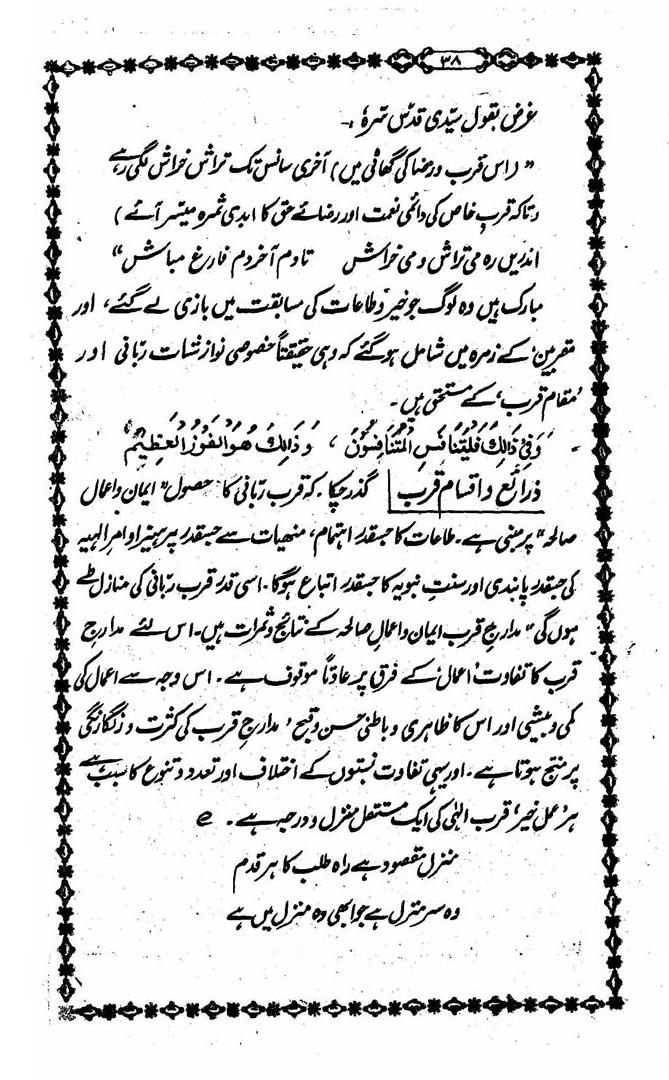 ۳۸
غرض بقول سیّدی قدس سرہٗ :-
" (اس قرب و رضا کی گھاٹی میں) آخری سانس تک تراش خراش لگی رہے
(تاکہ قرب خاص کی دائمی نعمت اور رضائے حق کا ابدی ثمرہ میسر آئے)
اندریں رہ می تراش و می خراش تادم آخر دم فارغ مباش "
مبارک ہیں وہ لوگ جو خیر و طاعات کی مسابقت میں بازی لے گئے، اور
مقربین، کے زمرہ میں شامل ہو گئے کہ وہی حقیقتاً خصوصی نوازشات ربانی اور
'مقام قرب' کے مستحق ہیں۔
وَفِیْ ذَالِكَ فَلْيَتَنَافَسِ الْمُتَنَافِسُوْنَ ، وَذَالِكَ هُوَ الْفَوْزُ الْعَظِيْمُ
ذرائع و اقسام قرب گذر چکا۔ کہ قرب ربانی کا حصول " ایمان و اعمال
صالحہ " پر مبنی ہے۔ طاعات کا جسقدر اہتمام، منہیات سے جسقدر پرہیز اوامر الہیہ
کی جسقدر پابندی اور سنت نبویہ کا جسقدر اتباع ہوگا۔ اسی قدر قرب ربّانی کی منازل طے
ہوں گی " مدارج قرب ایمان و اعمال صالحہ کے نتائج و ثمرات ہیں۔ اس لئے مدارج
قرب کا تفاوت 'اعمال' کے فرق پر عادتاً موقوف ہے۔ اس وجہ سے اعمال کی
کمی و بیشی اور اس کا ظاہری و باطنی حسن و قبح ' مدارج قرب کی کثرت و رنگارنگی
پر منتج ہوتا ہے۔ اور یہی تفاوت نسبتوں کے اختلاف اور تعدد و تنوع کا سبب ہے
ہر 'عمل خیر' قرب الہٰی کی ایک مستقل منزل و درجہ ہے۔ ع
منزل مقصود ہے راہ طلب کا ہر قدم
وہ سر منزل ہے جو ابھی وہ منزل میں ہے